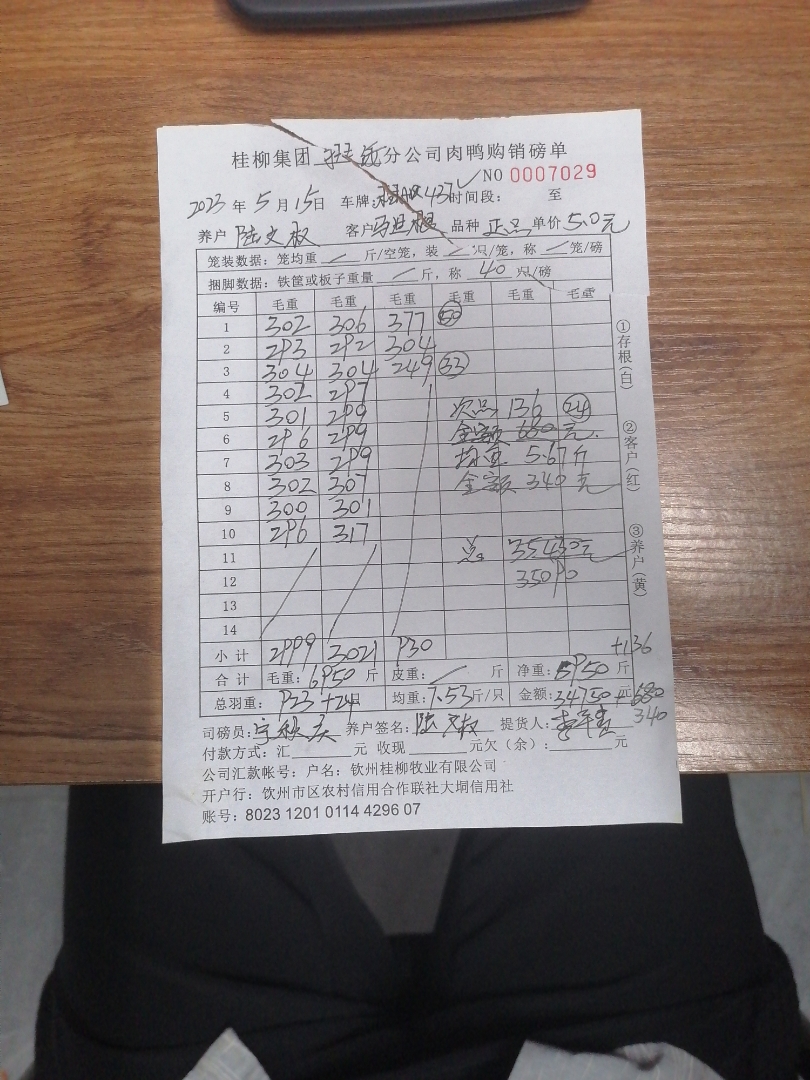 桂柳集团 分公司肉鸭购销磅单
NO 0007029
2023年5月15日 车牌: 437 时间段: 至
养户 陆文权 客户 品种 正品 单价 5.0元
笼装数据:笼均重 斤/空笼,装 只/笼,称 笼/磅
捆脚数据:铁筐或板子重量 斤,称 40 只/磅
编号 毛重 毛重 毛重 毛重 毛重 毛重
1 302 306 377 50
2 293 292 304
3 304 304 249 33
4 302 297
5 301 299 次品 136 24
6 296 299 金额 680元.
7 303 299 均重 5.67斤
8 302 307 金额 340元
9 300 301
10 296 317
11 总: 35430元
12 35090
13
14
小计 2999 3021 930 +136
合计 毛重:6950斤 皮重: 斤 净重:6950斤
总羽重: 923+24只 均重:7.53斤/只 金额:34750元+680
340
司磅员: 养户签名:陆文权 提货人:
付款方式:汇 元 收现 元欠(余): 元
公司汇款帐号:户名:钦州桂柳牧业有限公司
开户行:钦州市区农村信用合作联社大垌信用社
账号:8023 1201 0114 4296 07
①存根(白)
②客户(红)
③养户(黄)